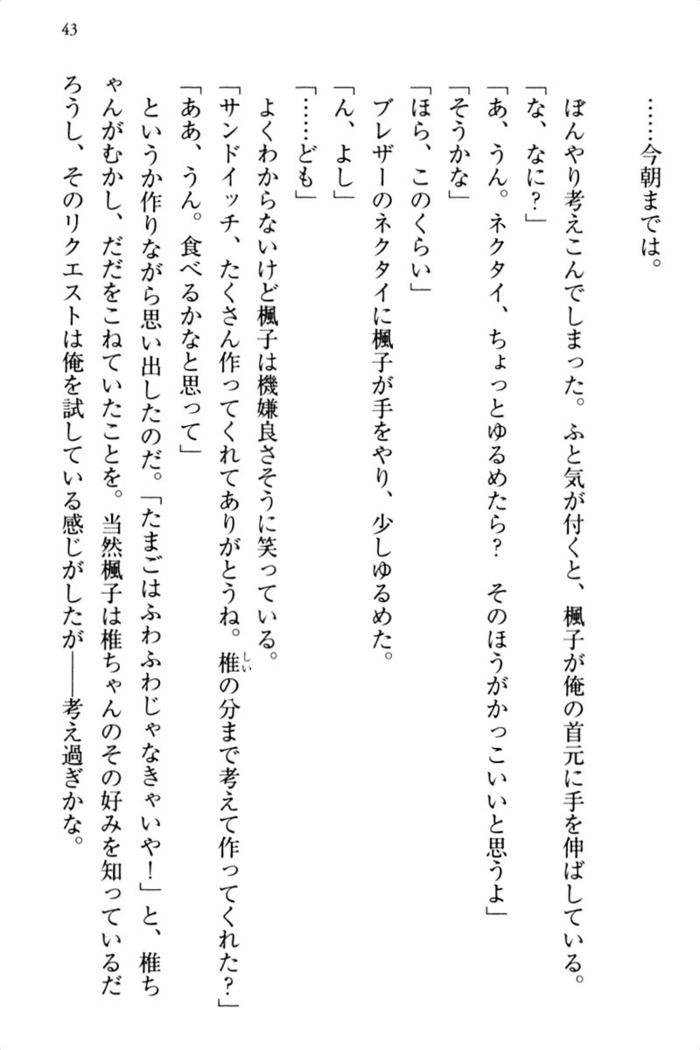 43
……今朝までは。
ぼんやり考えこんでしまった。ふと気が付くと、楓子が俺の首元に手を伸ばしている。
「な、なに?」
「あ、うん。ネクタイ、ちょっとゆるめたら? そのほうがかっこいいと思うよ」
「そうかな」
「ほら、このくらい」
ブレザーのネクタイに楓子が手をやり、少しゆるめた。
「ん、よし」
「……ども」
よくわからないけど楓子は機嫌良さそうに笑っている。
「サンドイッチ、たくさん作ってくれてありがとうね。椎しいの分まで考えて作ってくれた?」
「ああ、うん。食べるかなと思って」
というか作りながら思い出したのだ。「たまごはふわふわじゃなきゃいや!」と、椎ち
ゃんがむかし、だだをこねていたことを。当然楓子は椎ちゃんのその好みを知っているだ
ろうし、そのリクエストは俺を試している感じがしたが――考え過ぎかな。